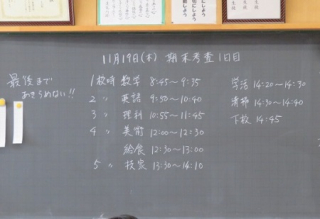 11月19日(木) 期末考査1日目
最後まで
あきらめない!!
1校時 数学 8:45〜9:35
2 〃 英語 9:50〜10:40
3 〃 理科 10:55〜11:45
4 〃 美術 12:00〜12:30
給食 12:30〜13:00
5 〃 技家 13:30〜14:10
学活 14:20〜14:30
清掃 14:30〜14:40
下校 14:45